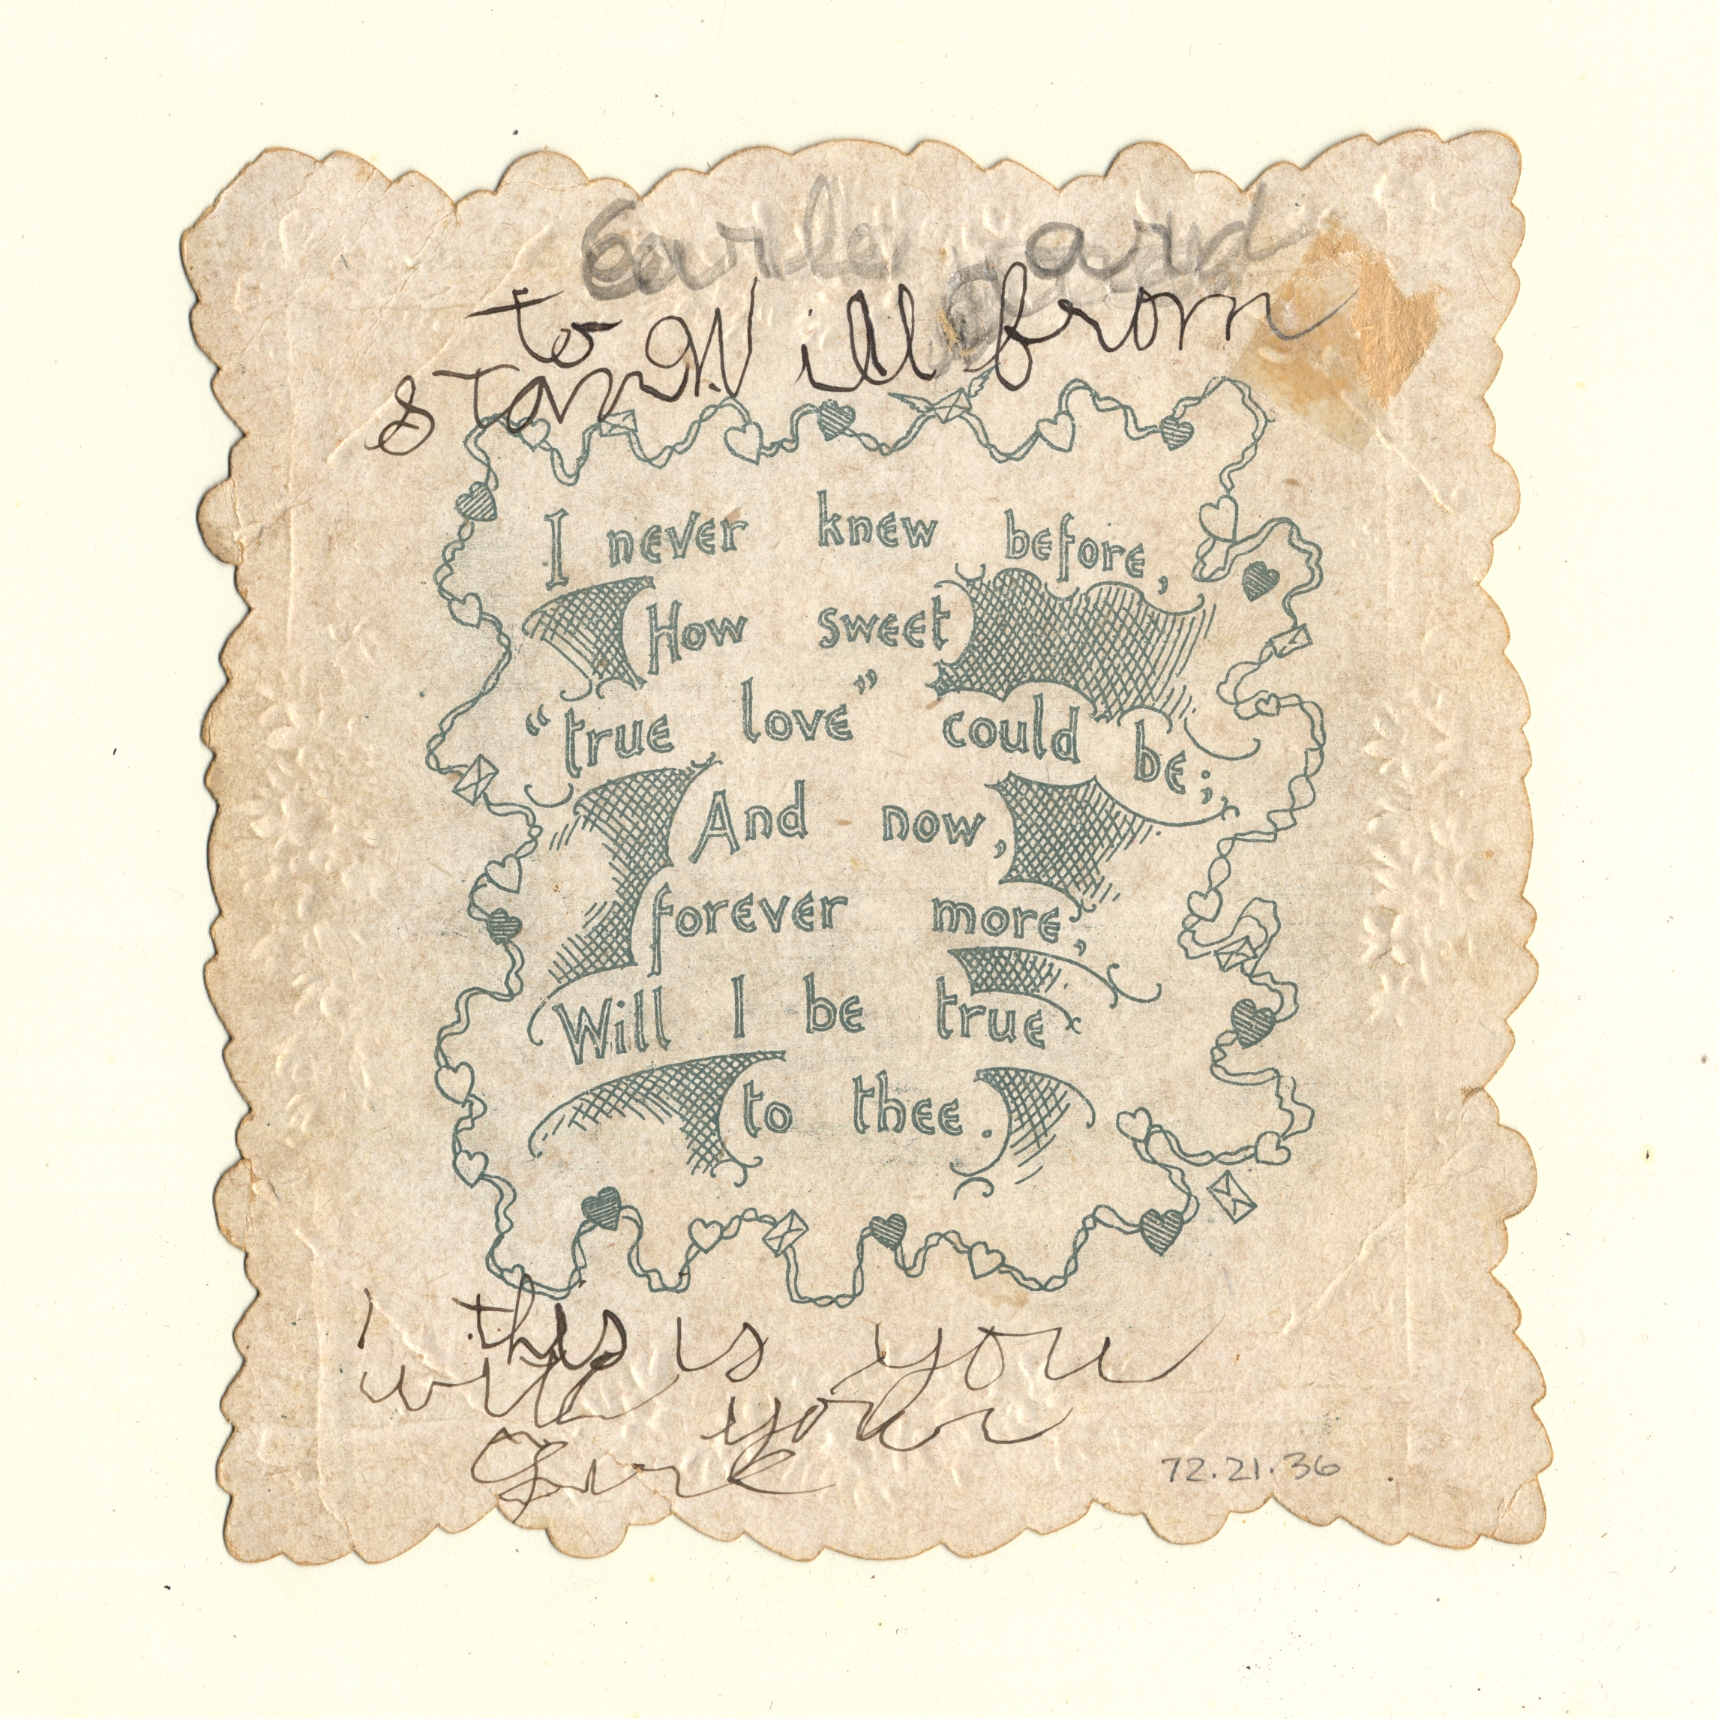 Earle ard
to Will from
stan
I never knew before,
How sweet
“true love” could be;
And now,
forever more,
Will I be true
to thee.
1 this is you
will your
72.21.36